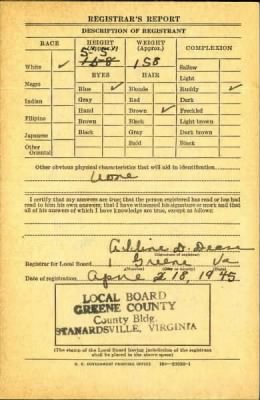 REGISTRAR'S REPORT
DESCRIPTION OF REGISTRANT
RACE
HEIGHT
(Approx.)
WEIGHT
(Approx.)
COMPLEXION
5-5
158
White ✓
Sallow
EYES
HAIR
Light
Negro
Blue ✓
Blonde
Ruddy ✓
Gray
Red
Dark
Indian
Hazel
Brown ✓
Freckled
Filipino
Brown
Black
Light brown
Japanese
Black
Gray
Dark brown
Other
Oriental
Bald
Black
Other obvious physical characteristics that will aid in identification
None
I certify that my answers are true; that the person registered has read or has had
read to him his own answers; that I have witnessed his signature or mark and that
all of his answers of which I have knowledge are true, except as follows:
D.
Registrar for Local Board 1 Greene Va
(Number) (City or county) (State)
Date of registration 18, 1945
LOCAL BOARD
GREENE COUNTY
County Bldg.
STANARDSVILLE, VIRGINIA
(The stamp of the Local Board having jurisdiction of the registrant
shall be placed in the above space)
U. S. GOVERNMENT PRINTING OFFICE